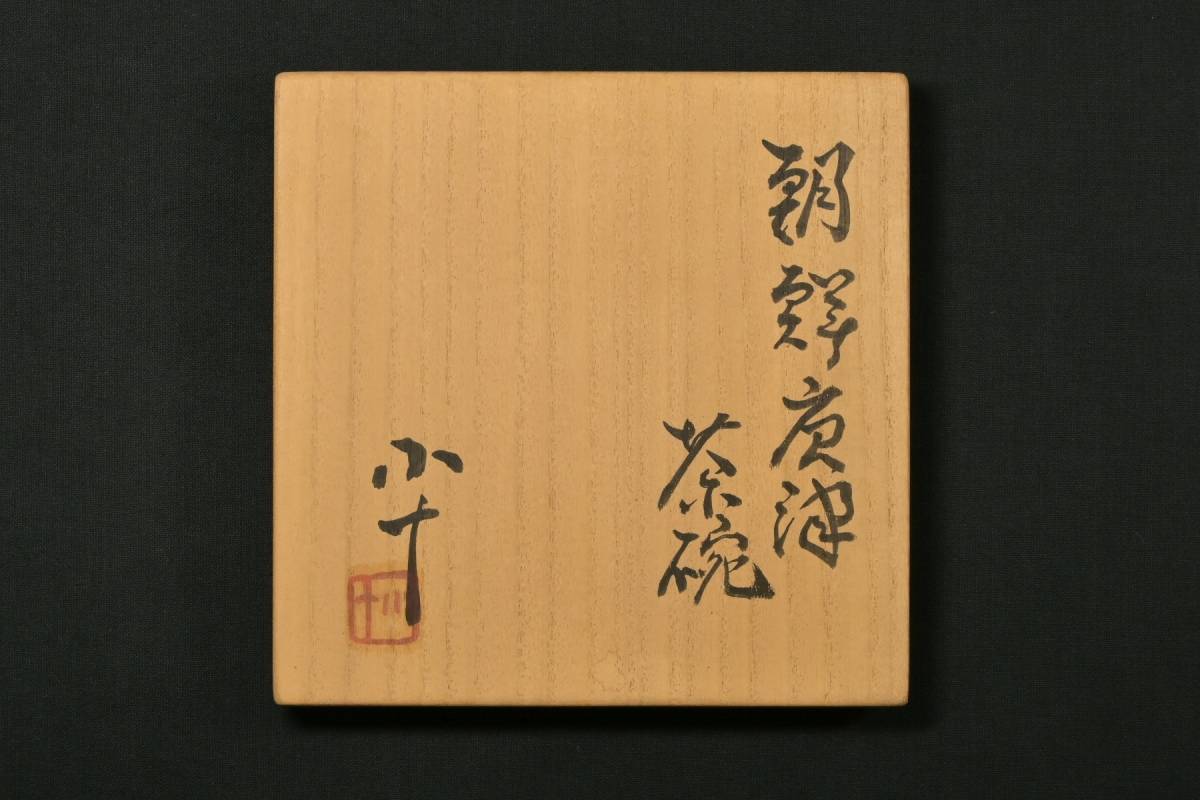 朝鮮唐津
茶碗
小十
小十